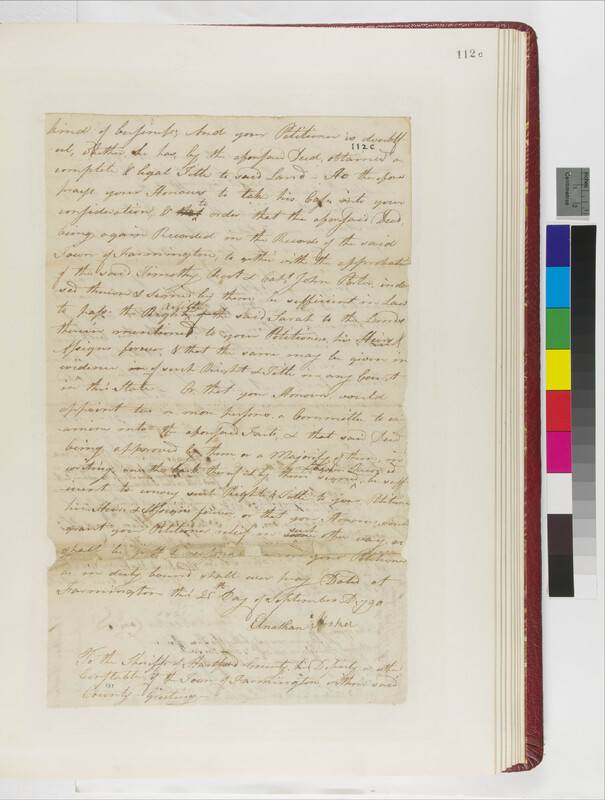 112c
kind of business; And your Petitioner is doubtf
112c
ul, Whether he has, by the aforesaid Deed, obtained a
complete & legal Title to said Land — He therefore
prays your Honours to take his Case into your
consideration, & to order that the aforesaid Deed,
being again Recorded in the Records of the said
Town of Farmington, together with the approbation
of the said Timothy, & Capt John Porter, indor
sed thereon & signed by them be sufficient in Law
to pass the Right of the said Sarah to the Lands
therein mentioned to your Petitioner, his Heirs &
Assigns forever & that the same may be given in
evidence of such Right & Title in any Court
in this State — Or that your Honours would
appoint two or more persons a Committee to ex
amine into the aforesaid Facts, & that said Deed
being approved by them or a Majority of them, in
writing, on the back thereof & by them signed, be suffi
cient to convey such Right & Title to your Petitioner
his Heirs & Assigns forever, or that your Honours would
grant your Petitioner relief in such other way as
shall be just & your Petitioner
as in duty bound shall ever pray Dated at
Farmington this 25th Day of September D. 1790
To the Sheriff of Hartford County, his Deputy or either
Constable of the Town of Farmington within said
County Greeting —
Centimetres